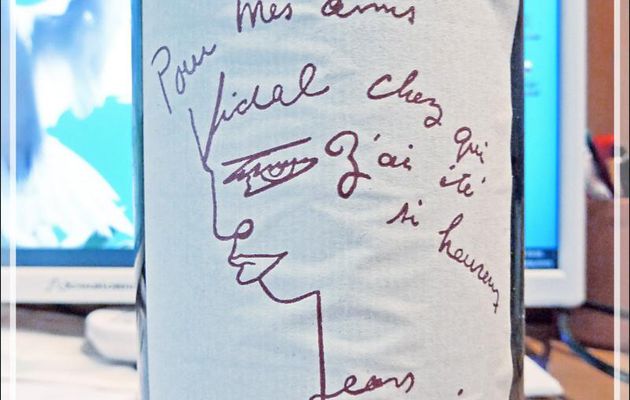 Pour mes amis
Vidal chez qui
J'ai été
si heureux
Jean